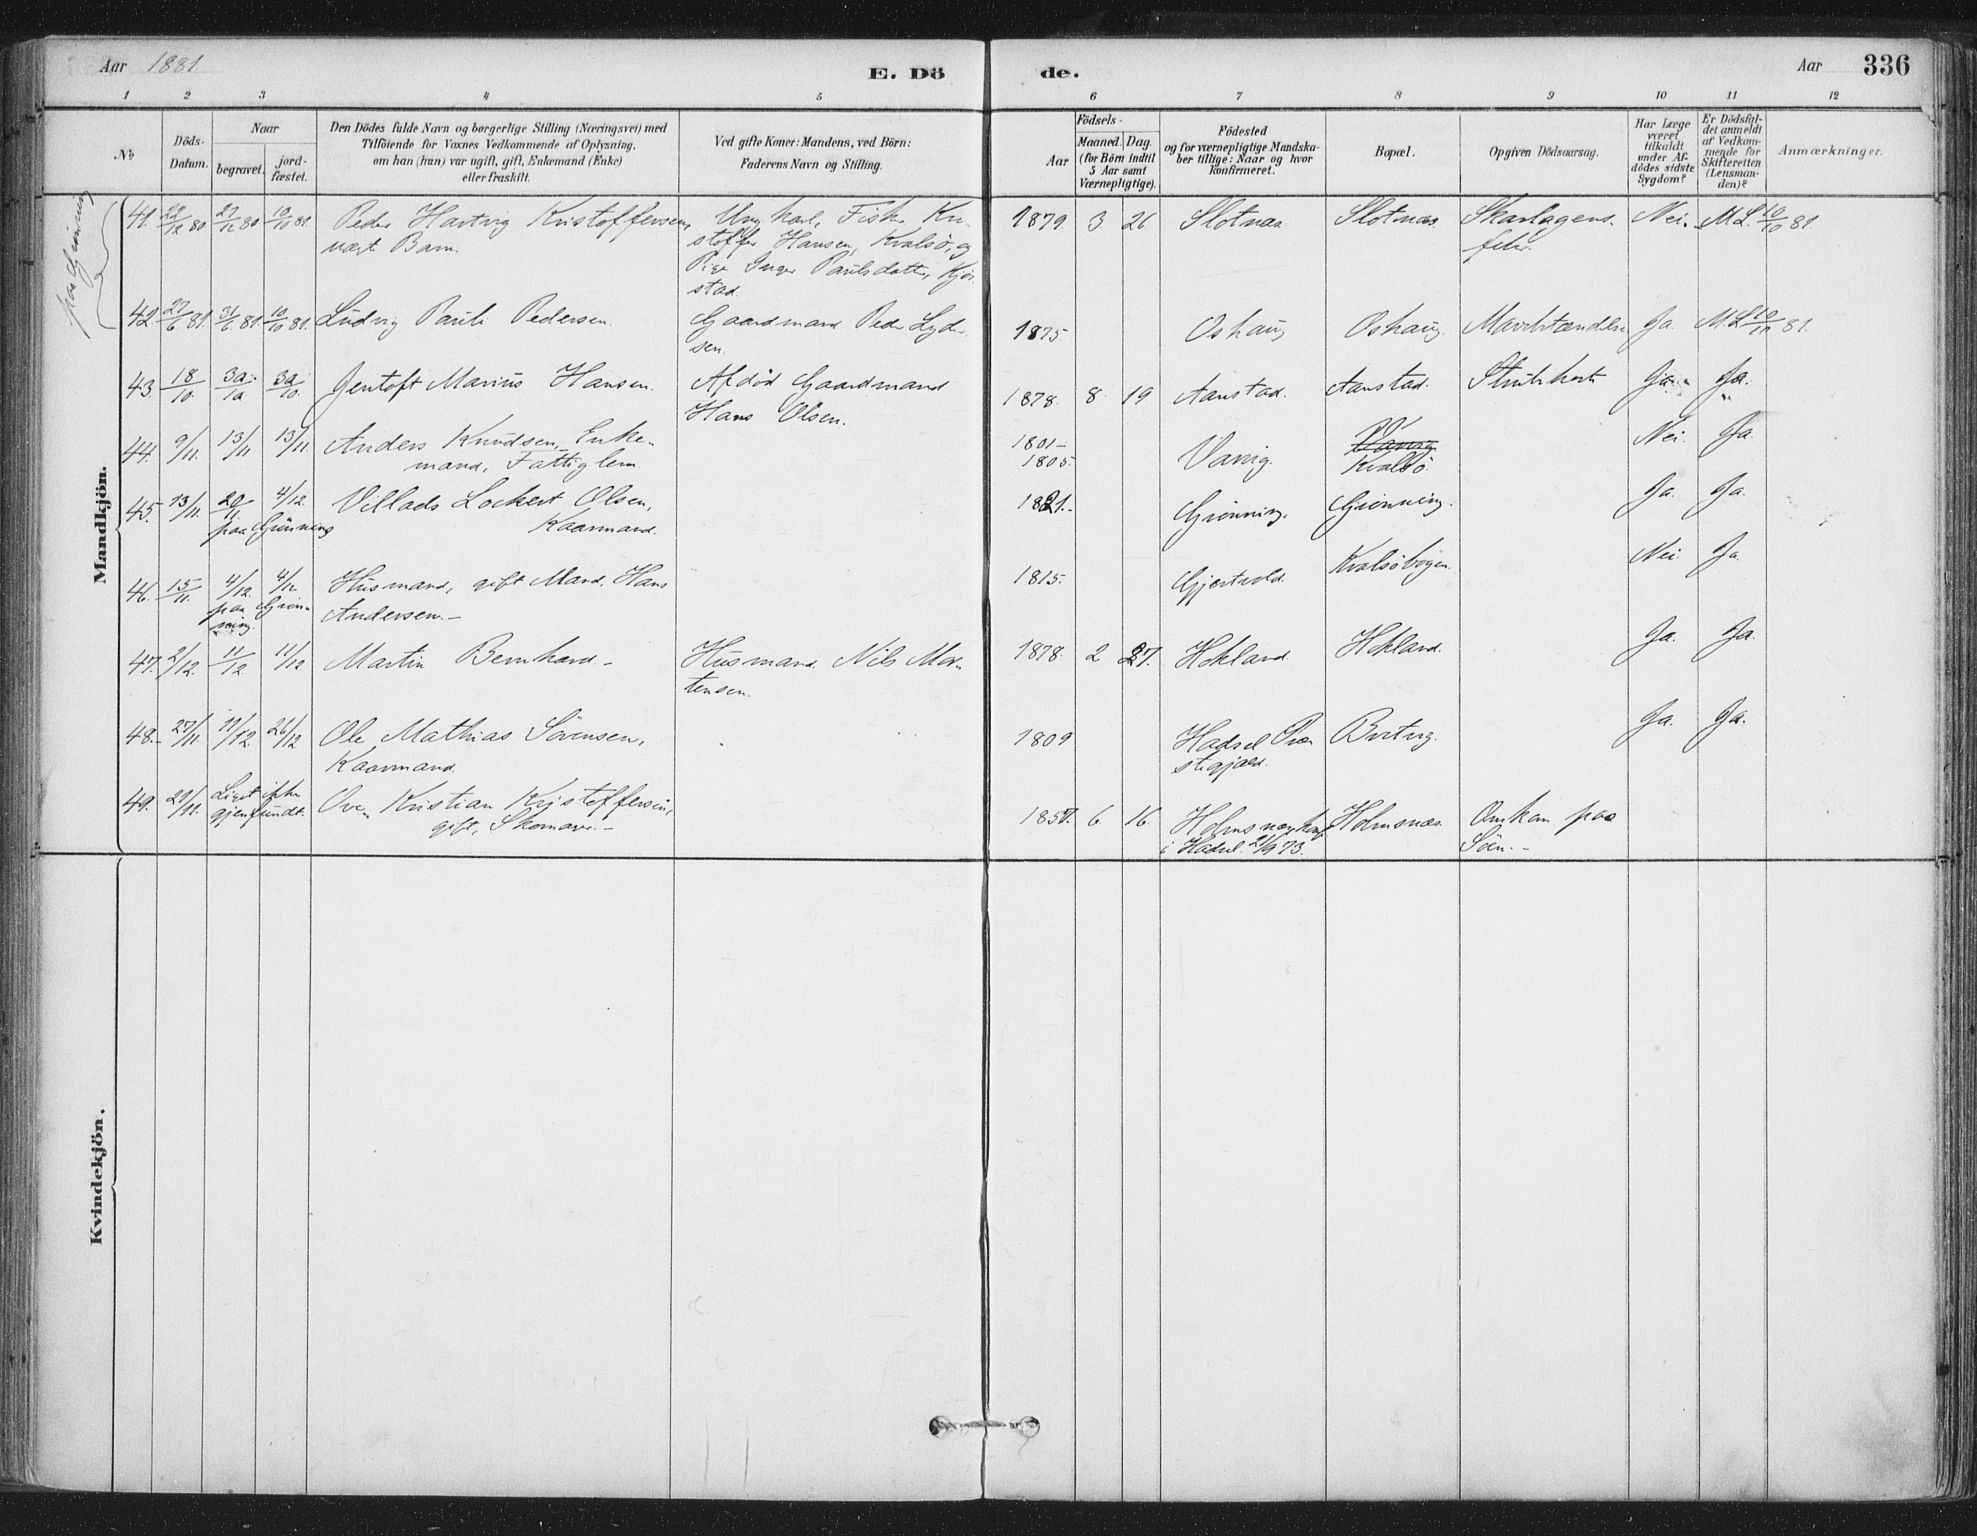 Aar 1881. E. Dö de. Aar 336
1 2 3 4 5 6 7 8 9 10 11 12
No.
Döds-
Datum.
Naar
begravet.
jord-
fæstet.
Den Dödes fulde Navn og borgerlige Stilling (Næringsvei) med
Tilföiende for Voxnes Vedkommende af Oplysning,
om han (hun) var ugift, gift, Enkemand (Enke)
eller fraskilt.
Ved gifte Koner: Mandens, ved Börn:
Faderens Navn og Stilling.
Födsels-
Aar
Maaned. Dag.
(for Börn indtil
5 Aar samt
Værnepligtige).
Födested
og for værnepligtige Mandska-
ber tillige: Naar og hvor
konfirmeret.
Bopæl.
Opgiven Dödsaarsag.
Har Læge
været
tilkaldt
under Af-
dödes sidste
Sygdom?
Er Dödsfal-
det anmeldt
af Vedkom-
mende for
Skifteretten
(Lensman-
den)?
Anmærkninger.
Mandkjön.
paa Grönning
41. 22/12 80 27/12 80 10/10 81. Peder Hartvig Kristoffersen, Ungkarl, Fisker Kri- 1879. 3 26 Slotnæs Slotnæs. Skarlagens- Nei. M.L. 10/10 81.
uægt Barn. stoffer Hansen, Kvalsö, og feber.
Pige Inger Paulsdatter, Kjør-
stad.
42. 27/6 81. 31/6 81. 10/10 81. Ludvig Pauli Pedersen. Gaardmand Peder Lyder- 1875. Oshaug Oshaug. Ja. M.L. 10/10 81.
sen.
43. 18/10. 30/10 30/10. Jentoft Marius Hansen. Afdød Gaardmand 1878. 8. 19 Aanstad. Aanstad. Strubehoste Ja. Ja.
Hans Olsen.
44. 9/11. 13/11 13/11. Anders Knudsen, Enke- 1801- 1805. Varvig. Kvalsö Nei. Ja.
mand, Fattiglem
45. 13/11. 20/11. 4/12. Villads Lockert Olsen, 1821. Grönning. Grönning. Ja. Ja.
paa Grönning Kaarmand.
46. 15/11. 4/12. 4/12 Husmand, gift Mand, Hans 1815. Gjertvold. Kvalsöbogen. Nei. Ja.
paa Grön- Andersen.-
ning.
47. 2/12. 11/12 11/12 Martin Bernhard- Husmand Nils Mor- 1878. 2 27. Hokland Hokland. Ja. Ja.
tensen.
48. 27/11. 11/12. 26/12 Ole Mathias Sörensen, 1809 Hadsel Præ- Ja. Ja.
Kaarmand. stegjæld.
49. 29/11. Liget ikke Ove Kristian Kristoffersen, 1857. 6 16. Holmsnæs, konf. Holmsnæs. Omkom paa
gjenfundt. gift, Skomager.- i Hadsel. 21/9 73. Söen.-
Kvindekjön.